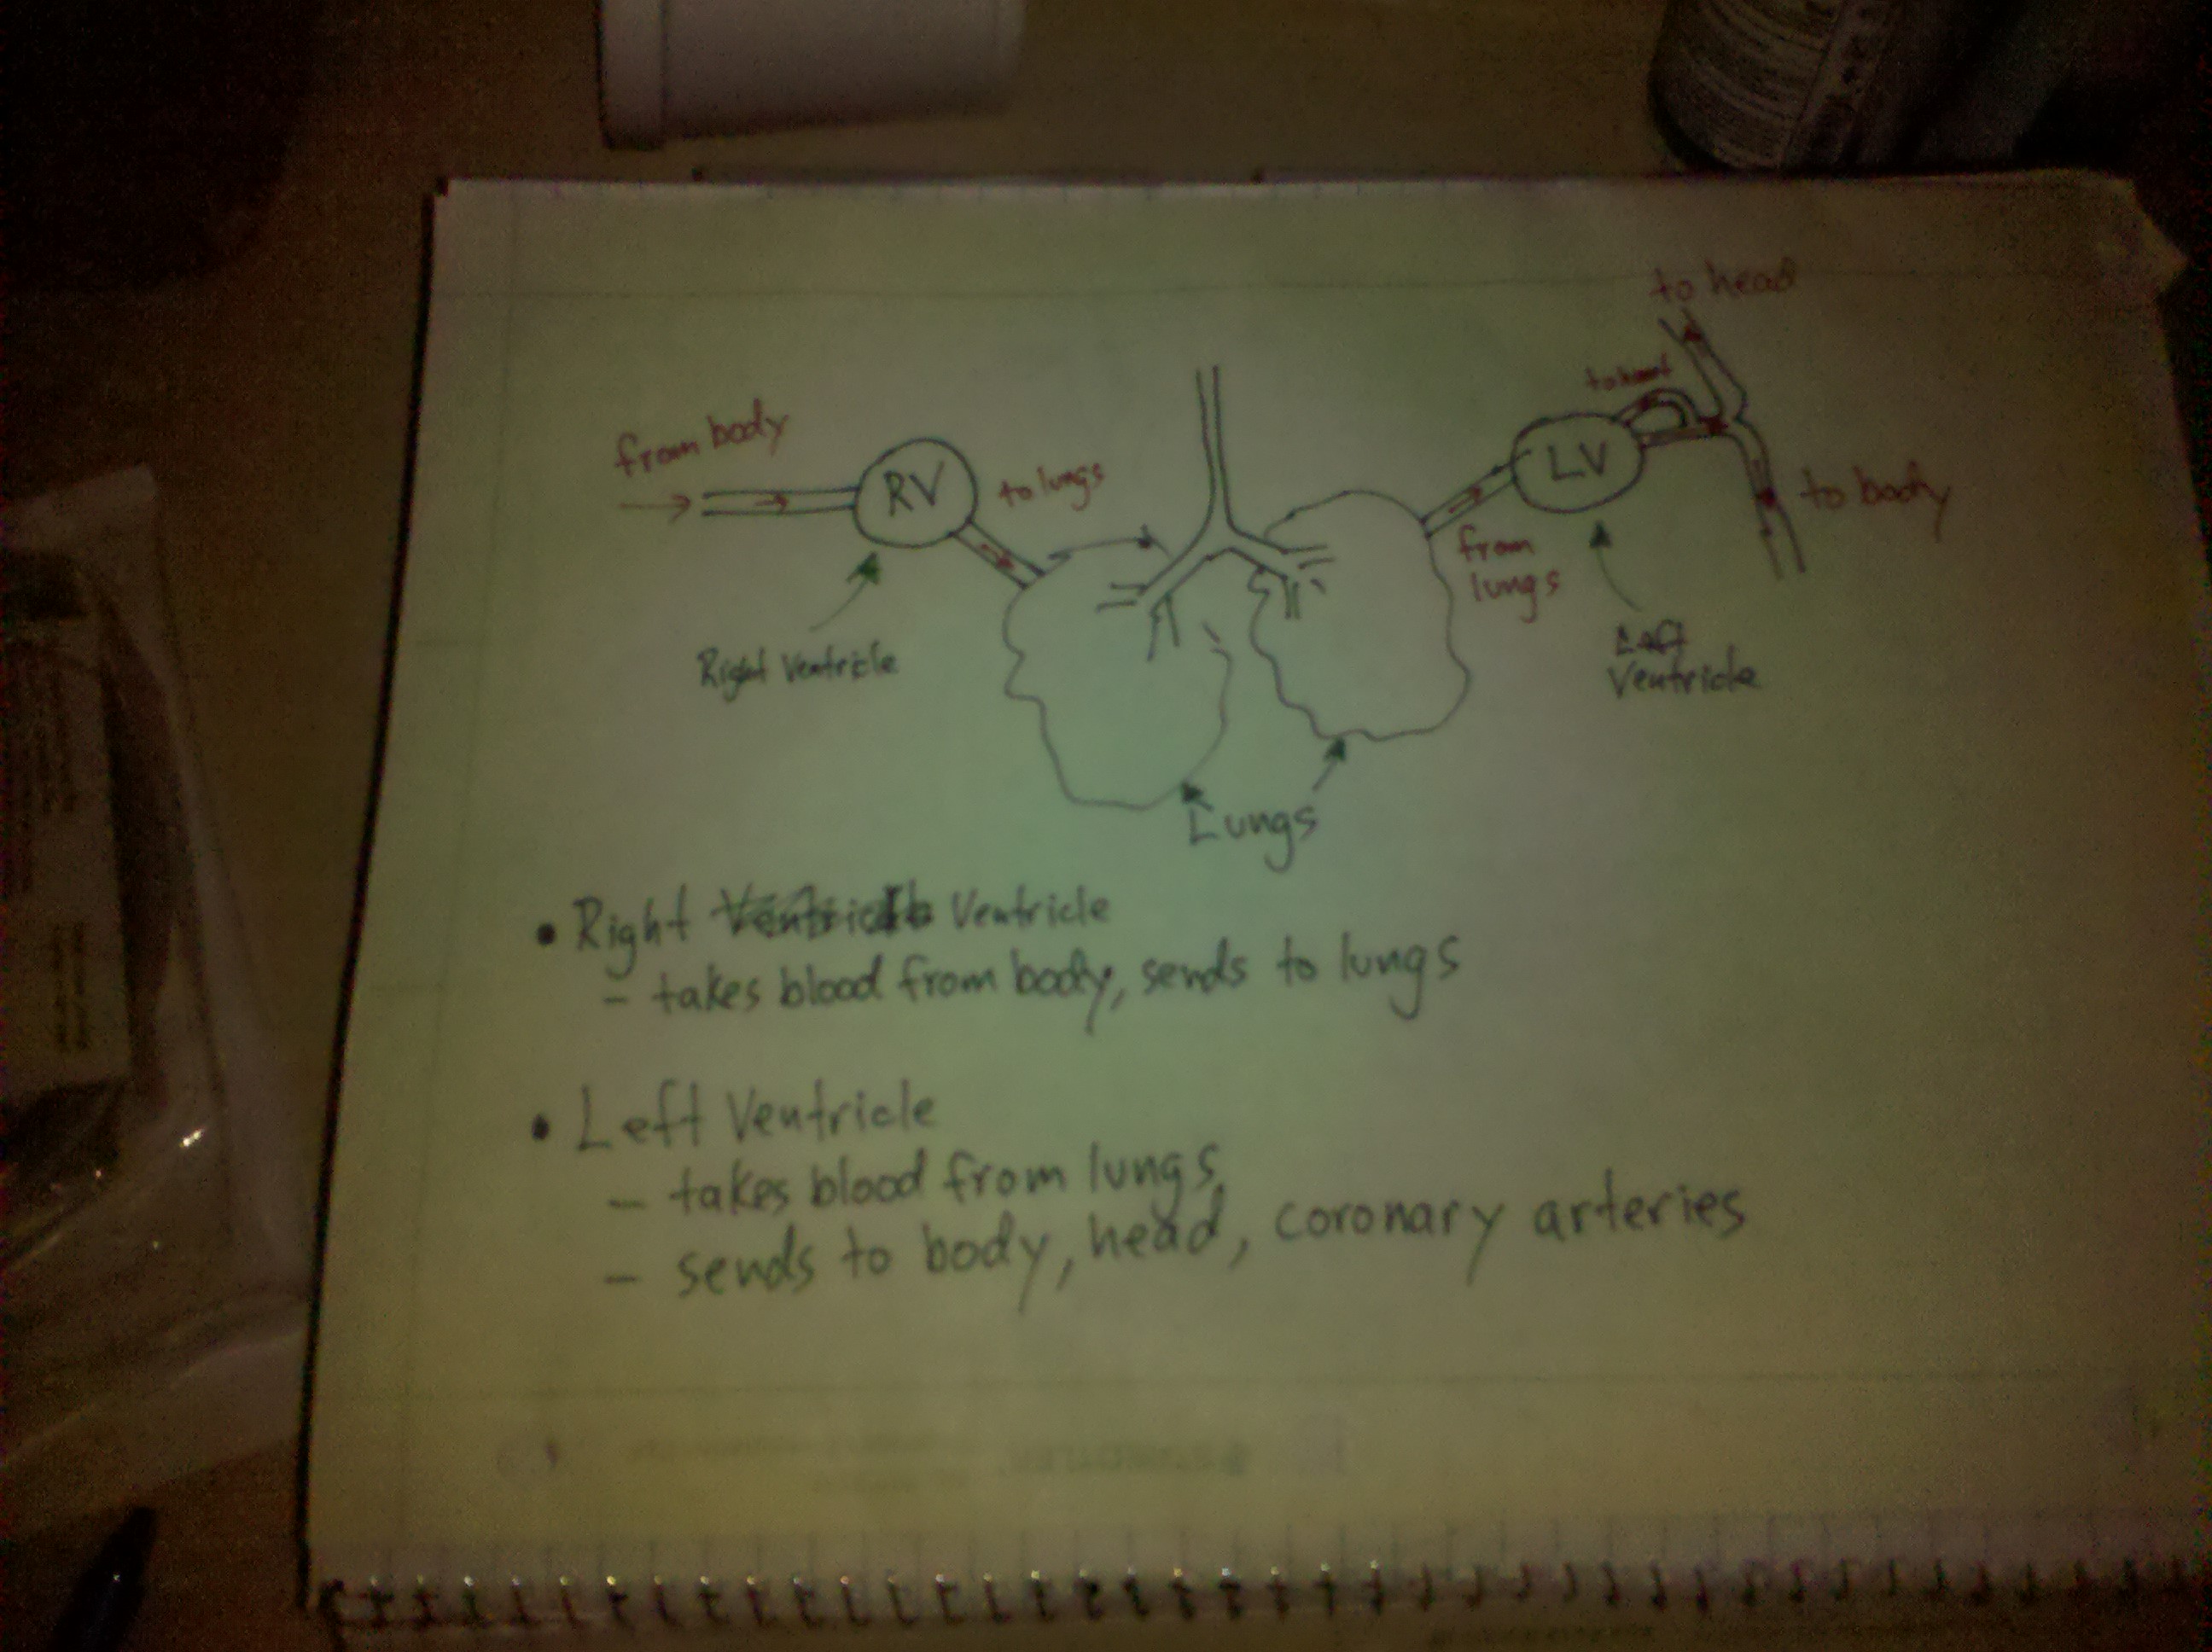 to head
to heart
from body
RV
to lungs
LV
to body
from
lungs
Right Ventricle
Left
Ventricle
Lungs
• Right Ventricle Ventricle
- takes blood from body, sends to lungs
• Left Ventricle
- takes blood from lungs,
- sends to body, head, coronary arteries